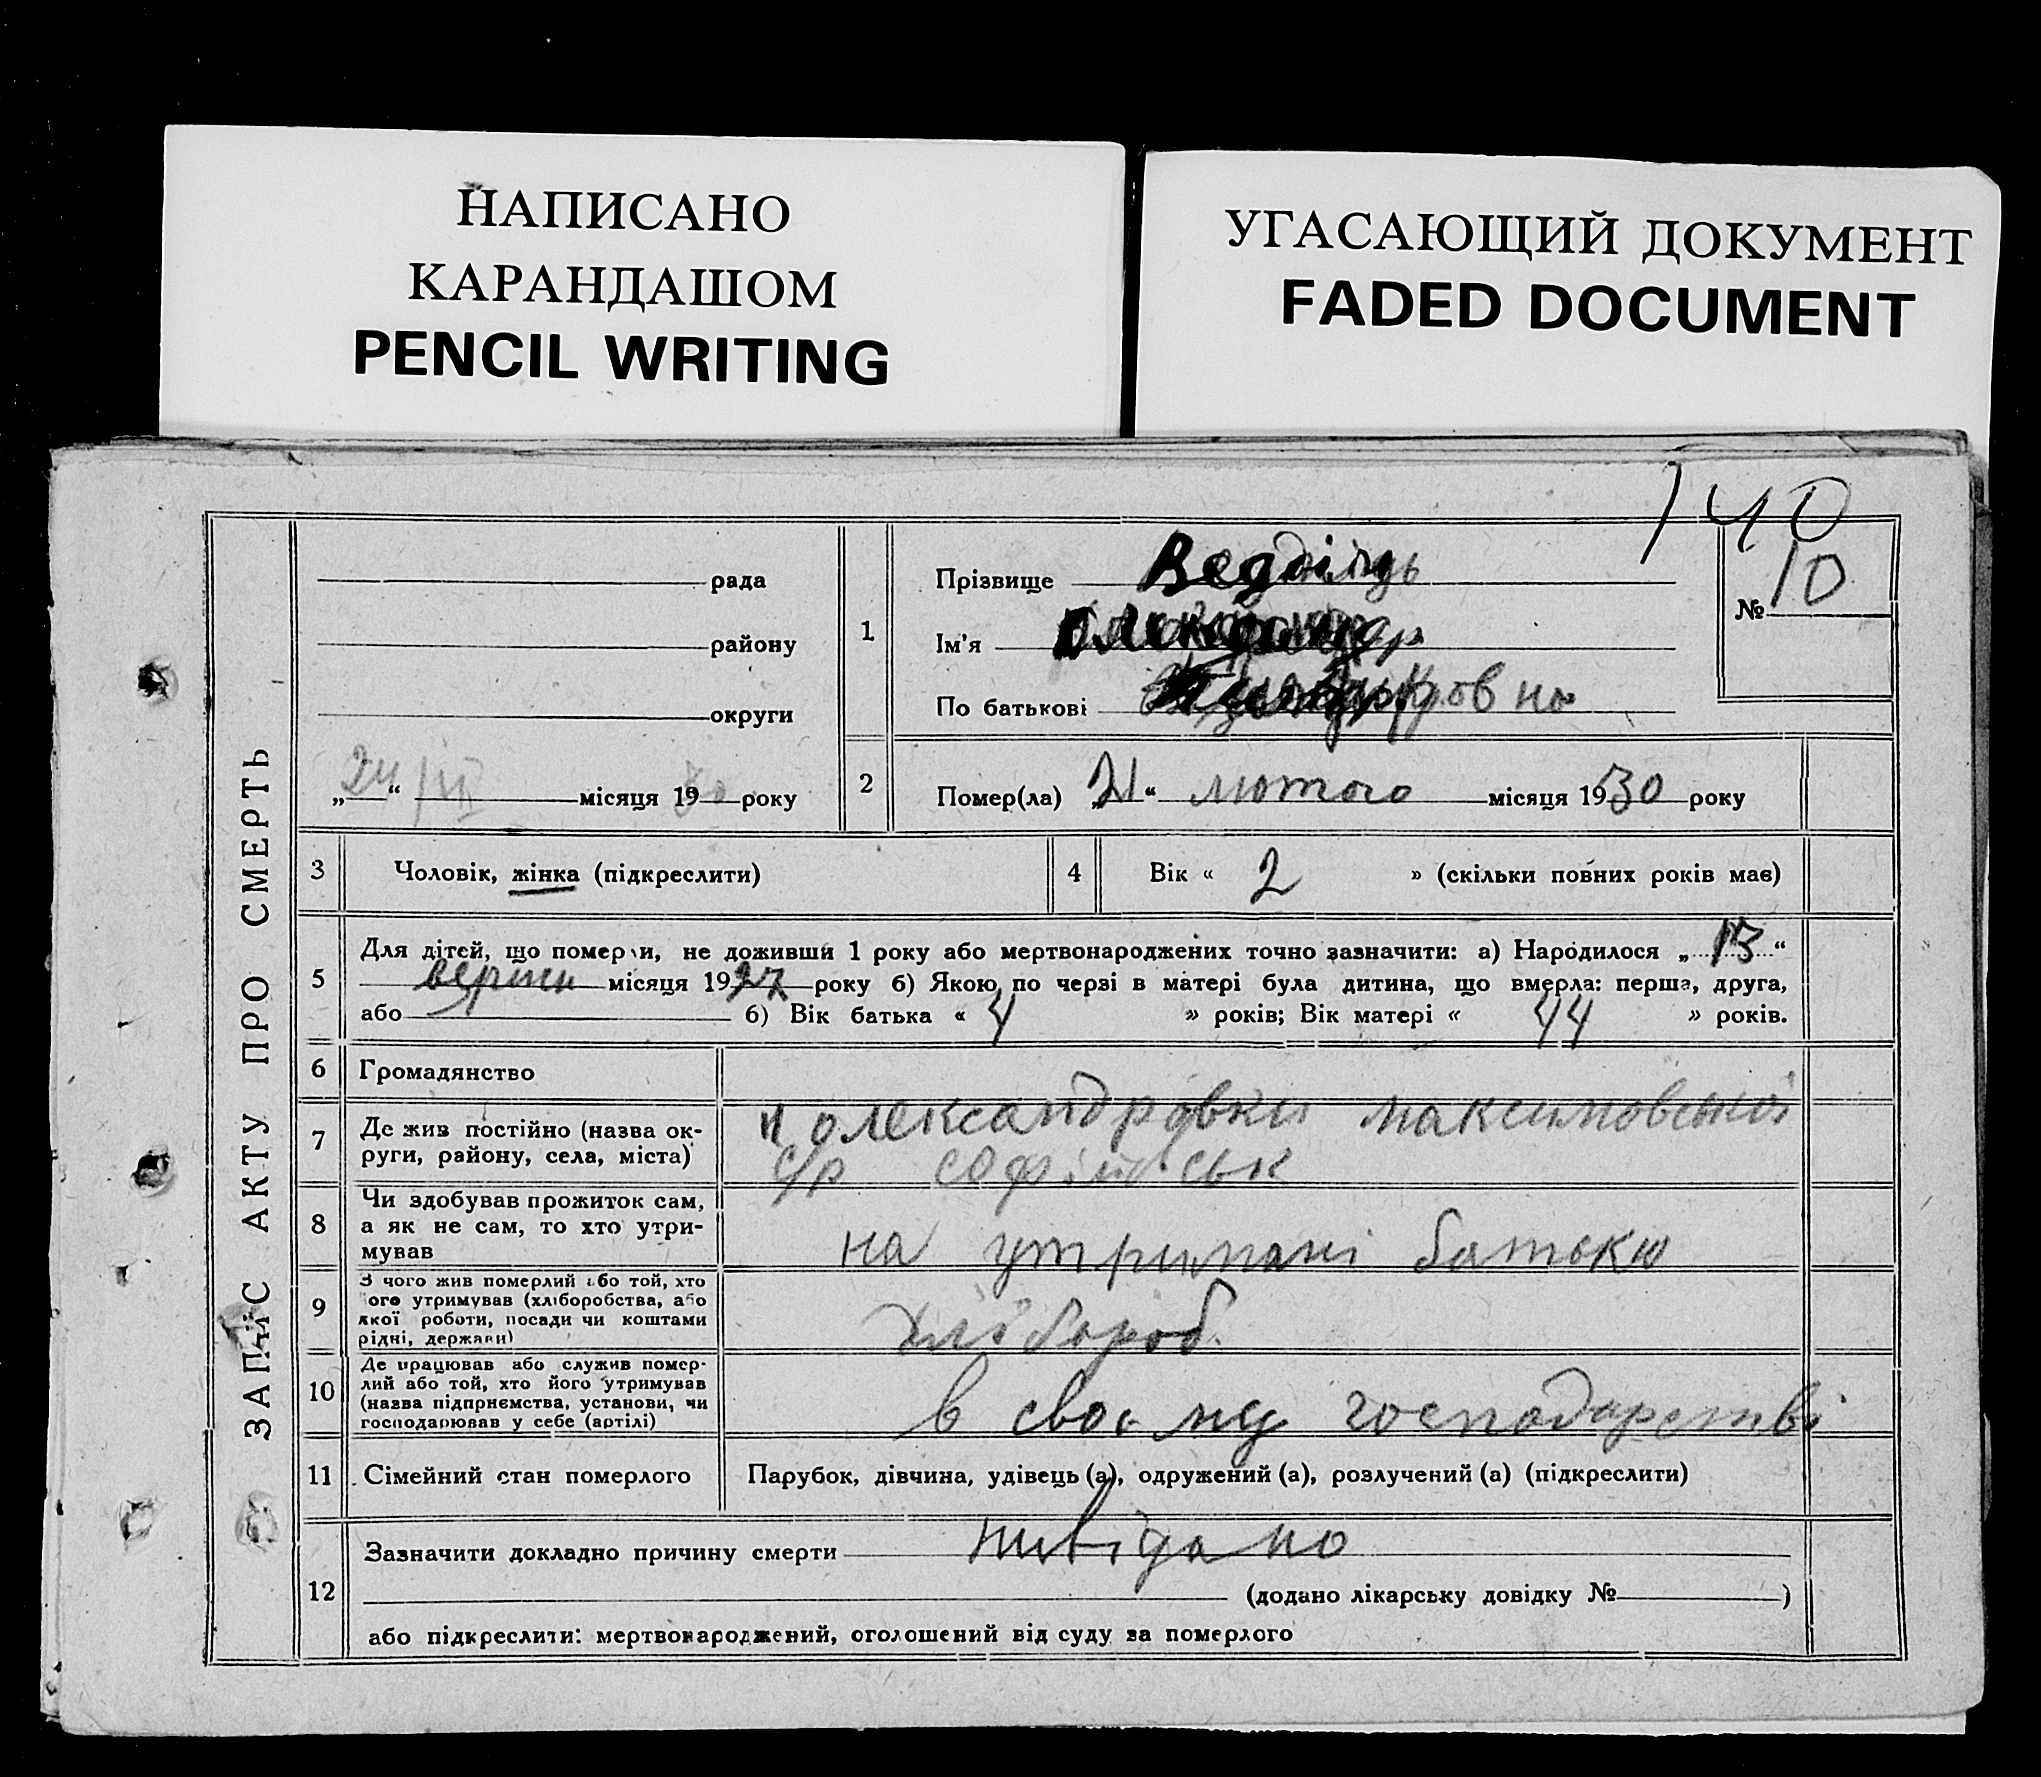 НАПИСАНО
КАРАНДАШОМ
PENCIL WRITING
УГАСАЮЩИЙ ДОКУМЕНТ
FADED DOCUMENT
140
ЗАПИС АКТУ ПРО СМЕРТЬ
рада
району
округи
„24“ місяця 1930 року
1
Прізвище
Ім'я
По батькові
№ 10
2
Помер(ла) „21“ лютого місяця 1930 року
3 Чоловік, жінка (підкреслити)
4 Вік « 2 » (скільки повних років має)
5
Для дітей, що померли, не доживши 1 року або мертвонароджених точно зазначити: а) Народилося „ 13 “
місяця 1927 року б) Якою по черзі в матері була дитина, що вмерла: перша, друга,
або б) Вік батька « » років; Вік матері « 44 » років.
6 Громадянство
7 Де жив постійно (назва ок-
руги, району, села, міста)
олександровки максимовської
с/р
8 Чи здобував прожиток сам,
а як не сам, то хто утри-
мував
на утримані батька
9 З чого жив померлий або той, хто
його утримував (хліборобства, або
якої роботи, посади чи коштами
рідні, держави)
хлібороб
10 Де працював або служив помер-
лий або той, хто його утримував
(назва підприємства, установи, чи
господарював у себе (артілі)
в своєму господарстві
11 Сімейний стан померлого
Парубок, дівчина, удівець (а), одружений (а), розлучений (а) (підкреслити)
12
Зазначити докладно причину смерти
(додано лікарську довідку № )
або підкреслити: мертвонароджений, оголошений від суду за померлого